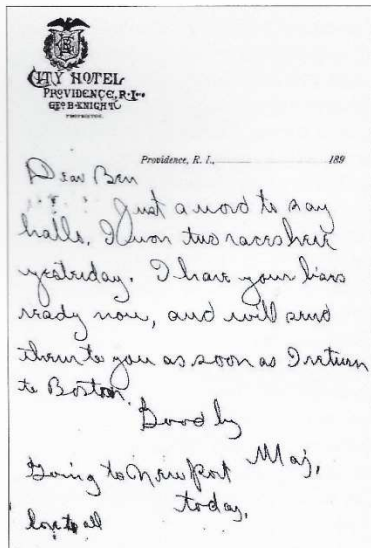 CITY HOTEL
PROVIDENCE, R.I.
GEO B. KNIGHT
PROPRIETOR
Providence, R. I., 189
Dear Ben
Just a word to say
hallo. I won two races here
yesterday. I have your
ready now, and will send
them to you as soon as I return
to Boston.
Good by
Maj,
Going to Newport
today,
love to all